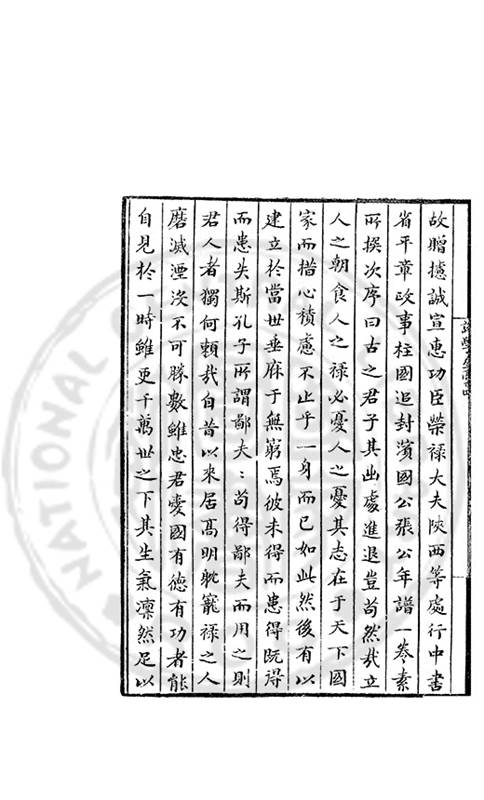 故贈攄誠宣惠功臣榮祿大夫陝西等處行中書
省平章政事柱國追封濱國公張公年譜一卷素
所撰次序曰古之君子其出處進退豈苟然哉立
人之朝食人之祿必憂人之憂其志在于天下國
家而措心積慮不止乎一身而已如此然後有以
建立於當世垂庥于無窮焉彼未得而患得既得
而患失斯孔子所謂鄙夫：苟得鄙夫而用之則
君人者獨何賴哉自昔以來居高明躭寵祿之人
磨滅湮沒不可勝數雖忠君愛國有德有功者能
自見於一時雖更千萬世之下其生氣凜然足以
NATIONAL